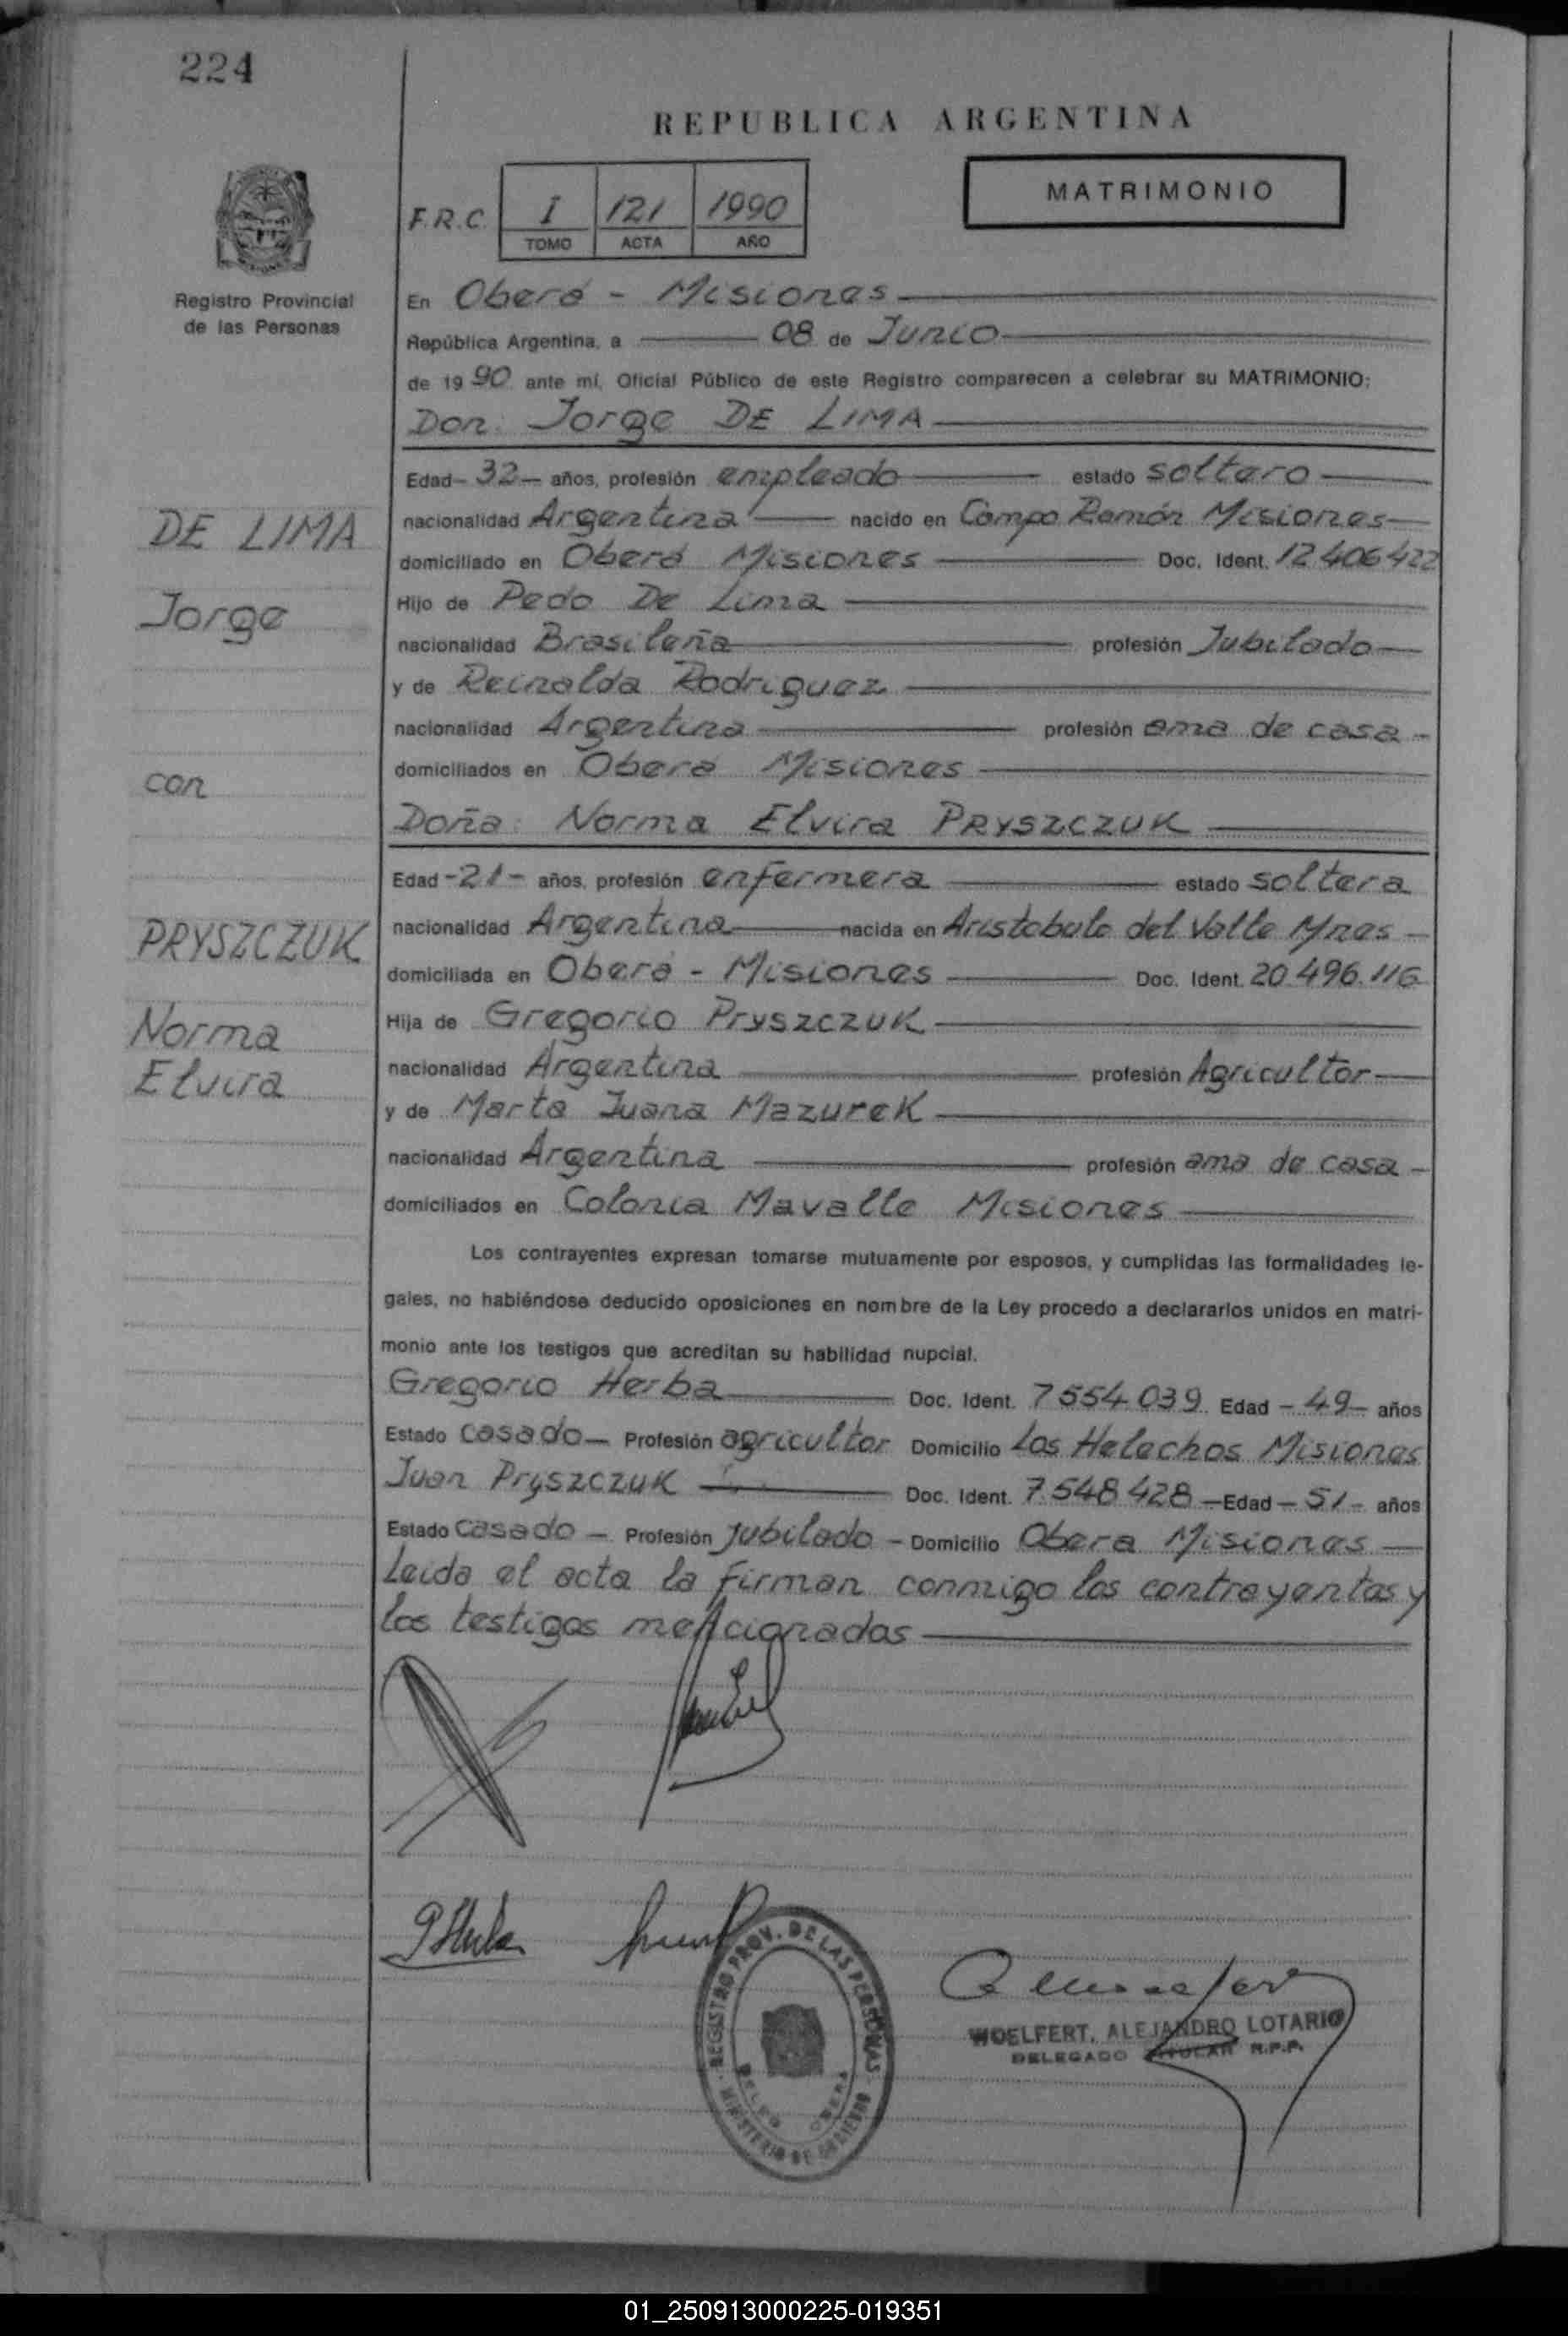 224
REPUBLICA ARGENTINA
MATRIMONIO
F.R.C. I 121 1990
TOMO ACTA AÑO
Registro Provincial
de las Personas
En Oberá - Misiones
República Argentina, a 08 de Junio
de 1990 ante mí, Oficial Público de este Registro comparecen a celebrar su MATRIMONIO:
Don: Jorge DE LIMA
Edad - 32 - años, profesión empleado estado soltero
nacionalidad Argentina nacido en Campo Ramón Misiones
domiciliado en Oberá Misiones Doc. Ident. 12.406.422
Hijo de Pedo De Lima
nacionalidad Brasileña profesión Jubilado
y de Reinalda Rodriguez
nacionalidad Argentina profesión ama de casa
domiciliados en Obera Misiones
Doña: Norma Elvira PRYSZCZUK
Edad - 21 - años, profesión enfermera estado soltera
nacionalidad Argentina nacida en Aristobulo del Valle Mnes
domiciliada en Oberá - Misiones Doc. Ident. 20.496.116
Hija de Gregorio Pryszczuk
nacionalidad Argentina profesión Agricultor
y de Marta Juana Mazurek
nacionalidad Argentina profesión ama de casa
domiciliados en Colonia Mavalle Misiones
DE LIMA
Jorge
con
PRYSZCZUK
Norma
Elvira
Los contrayentes expresan tomarse mutuamente por esposos, y cumplidas las formalidades le-
gales, no habiéndose deducido oposiciones en nombre de la Ley procedo a declararlos unidos en matri-
monio ante los testigos que acreditan su habilidad nupcial.
Gregorio Herba Doc. Ident. 7554.039 Edad - 49 - años
Estado casado - Profesión agricultor Domicilio Los Helechos Misiones
Juan Pryszczuk Doc. Ident. 7.548.428 - Edad - 51 - años
Estado casado - Profesión jubilado - Domicilio Obera Misiones
Leida el acta la firman conmigo los contrayentes y
los testigos mencionados
REGISTRO PROV. DE LAS PERSONAS
MINISTERIO DE GOBIERNO
DELEG. OBERA
WOELFERT, ALEJANDRO LOTARIO
DELEGADO TITULAR R.P.P.
01_250913000225-019351